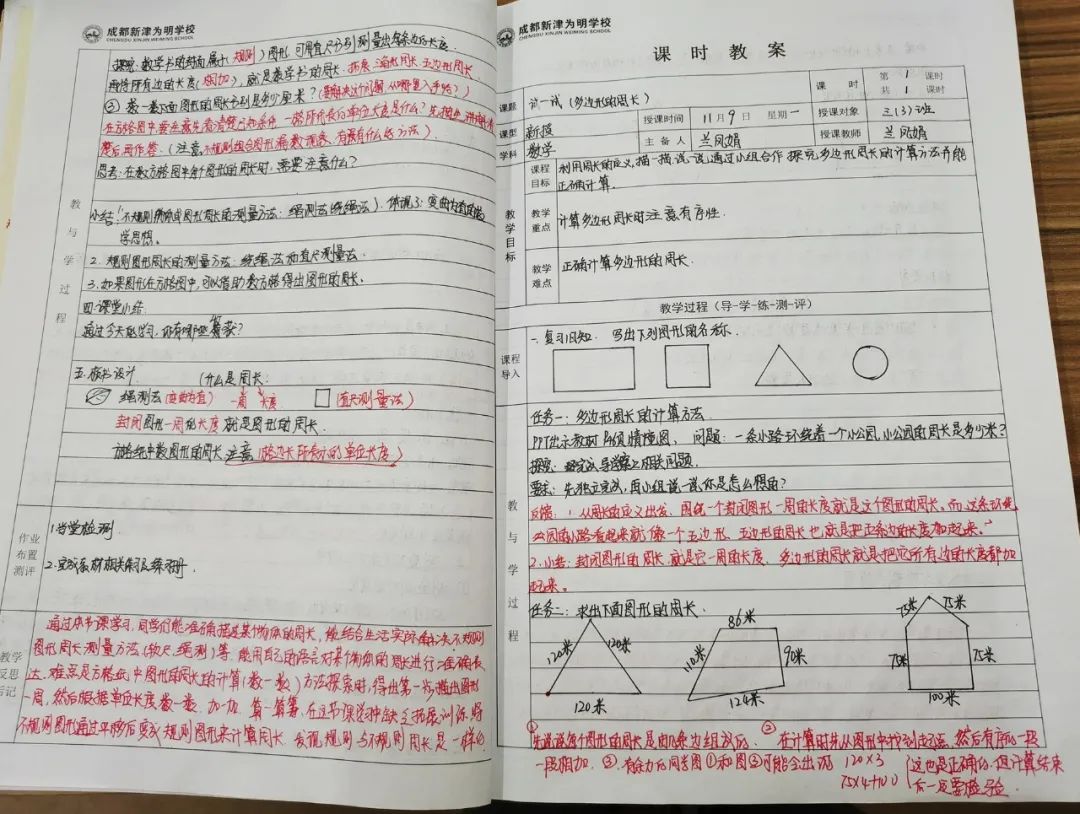 成都新津为明学校
CHENGDU XINJIN WEIMING SCHOOL
探究:数学书的封面属于(规则)图形,可用直尺分别测量出每条边的长度
再将所有边的长度(相加),就是数学书的周长.拓展:三角形周长.五边形周长.
② 数一数下面图形的周长分别是多少厘米?(要解决这个问题,从哪里入手呢?)
思考:在数方格图中每个图形的周长时,需要注意什么?
教与学过程
小结:1.不规则 图形周长的测量方法:绳测法(绕绳法).体现了:变曲为直的数
学思想。
2.规则图形周长的测量方法:绕绳法和直尺测量法.
3.如果图形在方格图中,可以借助数方格得出图形的周长。
四.课堂小结.
通过今天的学习,你有哪些 收获?
五.板书设计. 什么是周长:
绳测法(变曲为直) 一周 长度 (直尺测量法)
封闭图形一周的长度就是图形的周长.
方格纸中数图形的周长注意(1格边长所表示的单位长度.)
作业布置测评
1.当堂检测.
2.完成教材相关练习及练习册.
教学反思后记
通过本节课学习,同学们能准确描述某个物体的周长,能结合生活实际 解决不规则
图形周长测量方法(软尺、绳测)等.能用自己的语言对某个物体的周长进行准确表
达.难点是方格纸中图形的周长的计算(数一数)方法探索时,得出第一步描出图形
一周,然后根据单位长度数一数.加一加.算一算等,在这节课设计中缺乏拓展训练.将
不规则图形通过平移后变成规则图形来计算周长.发现规则与不规则周长是一样的
成都新津为明学校
CHENGDU XINJIN WEIMING SCHOOL
课时教案
课题 试一试(多边形的周长) 课时 第1课时 共1课时
课型 新授 授课时间 11月9日 星期一 授课对象 三(3)班
学科 数学 主备人 兰凤娟 授课教师 兰凤娟
教学目标
课程目标 利用周长的定义,描一描,说一说,通过小组合作探究多边形周长的计算方法并能
正确计算.
教学重点 计算多边形周长时注意有序性.
教学难点 正确计算多边形的周长.
教学过程(导-学-练-测-评)
课程导入
一.复习旧知. 写出下列图形的名称.
教与学过程
任务一:多边形周长的计算方法.
PPT出示教材 情境图, 问题:一条小路环绕着一个小公园,小公园的周长是多少米?
探究:完成导学案上相关问题.
要求:先独立完成,再小组说一说你是怎么想的?
反馈:1.从周长的定义出发.围绕一个封闭图形一周的长度就是这个图形的周长,而这条环绕
公园的小路看起来就像一个五边形,五边形的周长也就是把五条边的长度加起来.
2.小结:封闭图形的周长就是它一周的长度,多边形的周长就是把它所有边的长度都加
起来。
任务二:求出下面图形的周长.
120米 120米 120米
86米 110米 90米 124米
75米 75米 75米 75米 100米
① 先说说每个图形的周长是由几条边组成的. ② 在计算时先从图形中找到起点,然后有序的一段
一段相加. ③.有余力的同学图①和图③可能会出现 120×3 (这也是正确的,但计算结束
75×4+100 后一定要检验.